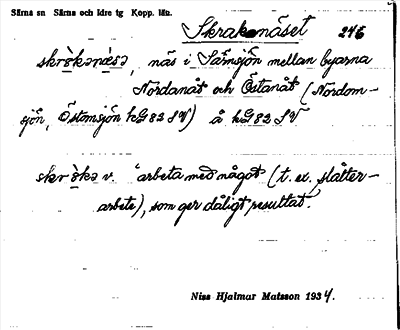 Särna sn Särna och Idre tg Kopp. län.
Skrakenäset 246
skrökənæsə, näs i Särnsjön mellan byarna
Nordanåt och Östanåt (Nordom-
sjön, Östomsjön hG82 SV) å hG82 SV
skrökə v. "arbeta med något (t. ex. slåtter-
arbete), som ger dåligt resultat."
Niss Hjalmar Matsson 1934.